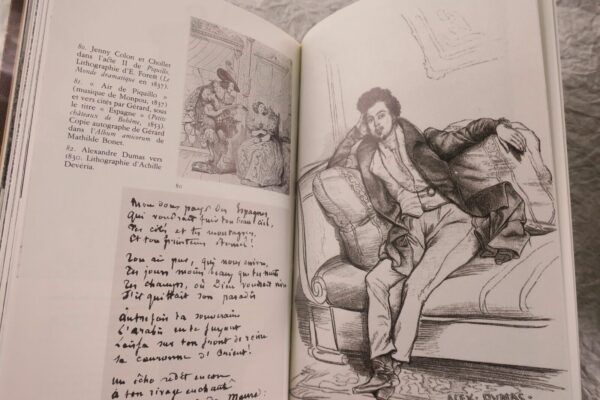 80. Jenny Colon et Chollet
dans l'acte II de Piquillo.
Lithographie d'E. Forest (Le
Monde dramatique en 1837).
81. « Air de Piquillo »
(musique de Monpou, 1837)
et vers cités par Gérard, sous
le titre « Espagne » (Petits
châteaux de Bohême, 1853)
Copie autographe de Gérard
dans l'Album amicorum de
Mathilde Bonet.
82. Alexandre Dumas vers
1830. Lithographie d'Achille
Devéria.
80
Mon doux pays des Espagnes
Qui voudrait fuir ton beau ciel,
Tes cités et tes montagnes,
Et ton printems éternel!
Ton air pur, qui nous enivre,
Tes jours moins beaux que tes nuits
Tes champs, où Dieu voudrait vivre
S'il quittait son paradis
Autrefois ta souveraine
L'Arabie en te fuyant
Laissa sur ton front de reine
Sa couronne d'Orient!
Un écho redit encore
à ton rivage enchanté
Maure
ALEX. DUMAS.